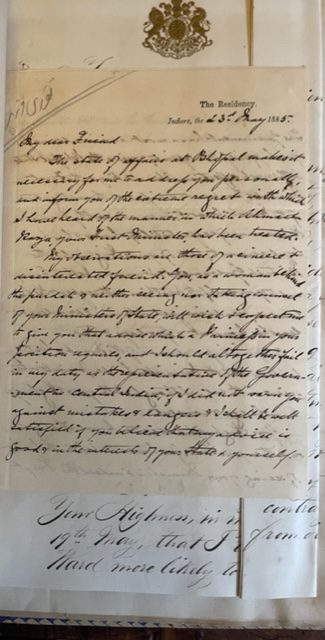 The Residency.
Indore, the 23rd May 1885.
My dear Friend
The state of affairs at Bhopal makes it
necessary for me to address you personally,
and inform you of the extreme regret with which
I have heard of the manner in which Ahmad
Raza your First Minister, has been treated.
My observations are those of a sincere &
disinterested friend. You, as a woman behind
the purdah & neither seeing nor taking counsel
of your Ministers of State, will wish & expect me
to give you that advice which a Princess in your
position requires, and I should altogether fail
in my duty, as the representative of the Govern-
ment in Central India, if I did not warn you
against mistakes & dangers & I shall be well
satisfied if you believe that my advice is
good & in the interests of your State & yourself
Your Highness, in
19th May, that I
Ward more likely to
contra
from